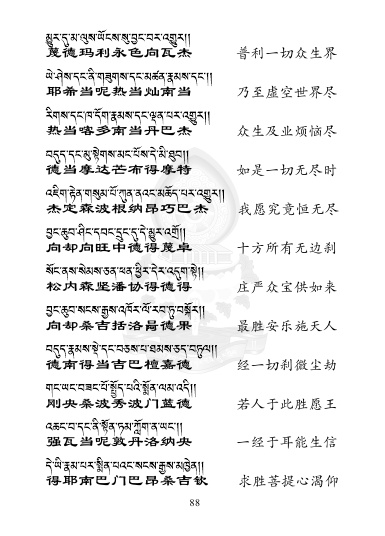 མྱུར་དུ་མ་ལུས་ཡོངས་སུ་བྱང་བར་འགྱུར།།
蔑德玛利永色向瓦杰 普利一切众生界
ཡེ་ཤེས་དང་ནི་གཟུགས་དང་མཚན་རྣམས་དང་།།
耶希当呢热当灿南当 乃至虚空世界尽
རིགས་དང་ཁ་དོག་རྣམས་དང་ལྡན་པར་འགྱུར།།
热当喀多南当丹巴杰 众生及业烦恼尽
བདུད་དང་མུ་སྟེགས་མང་པོས་དེ་མི་ཐུབ།།
德当摩达芒布得摩特 如是一切无尽时
འཇིག་རྟེན་གསུམ་པོ་ཀུན་ནའང་མཆོད་པར་འགྱུར།།
杰定森波根纳昂巧巴杰 我愿究竟恒无尽
བྱང་ཆུབ་ཤིང་དབང་དྲུང་དུ་དེ་མྱུར་འགྲོ།།
向却向旺中德得蔑卓 十方所有无边刹
སོང་ནས་སེམས་ཅན་ཕན་ཕྱིར་དེར་འདུག་སྟེ།།
松内森坚潘协得德得 庄严众宝供如来
བྱང་ཆུབ་སངས་རྒྱས་འཁོར་ལོ་རབ་ཏུ་བསྐོར།།
向却桑吉括洛曷德果 最胜安乐施天人
བདུད་རྣམས་སྡེ་དང་བཅས་པ་ཐམས་ཅད་བཏུལ།།
德南得当吉巴檀嘉德 经一切刹微尘劫
གང་ཡང་བཟང་པོ་སྤྱོད་པའི་སྨོན་ལམ་འདི།།
刚央桑波秀波门蓝德 若人于此胜愿王
འཆང་བ་དང་ནི་སྟོན་ཏམ་ཀློག་ན་ཡང་།།
强瓦当呢敦丹洛纳央 一经于耳能生信
དེ་ཡི་རྣམ་པར་སྨིན་པའང་སངས་རྒྱས་མཁྱེན།།
得耶南巴门巴昂桑吉钦 求胜菩提心渴仰
88